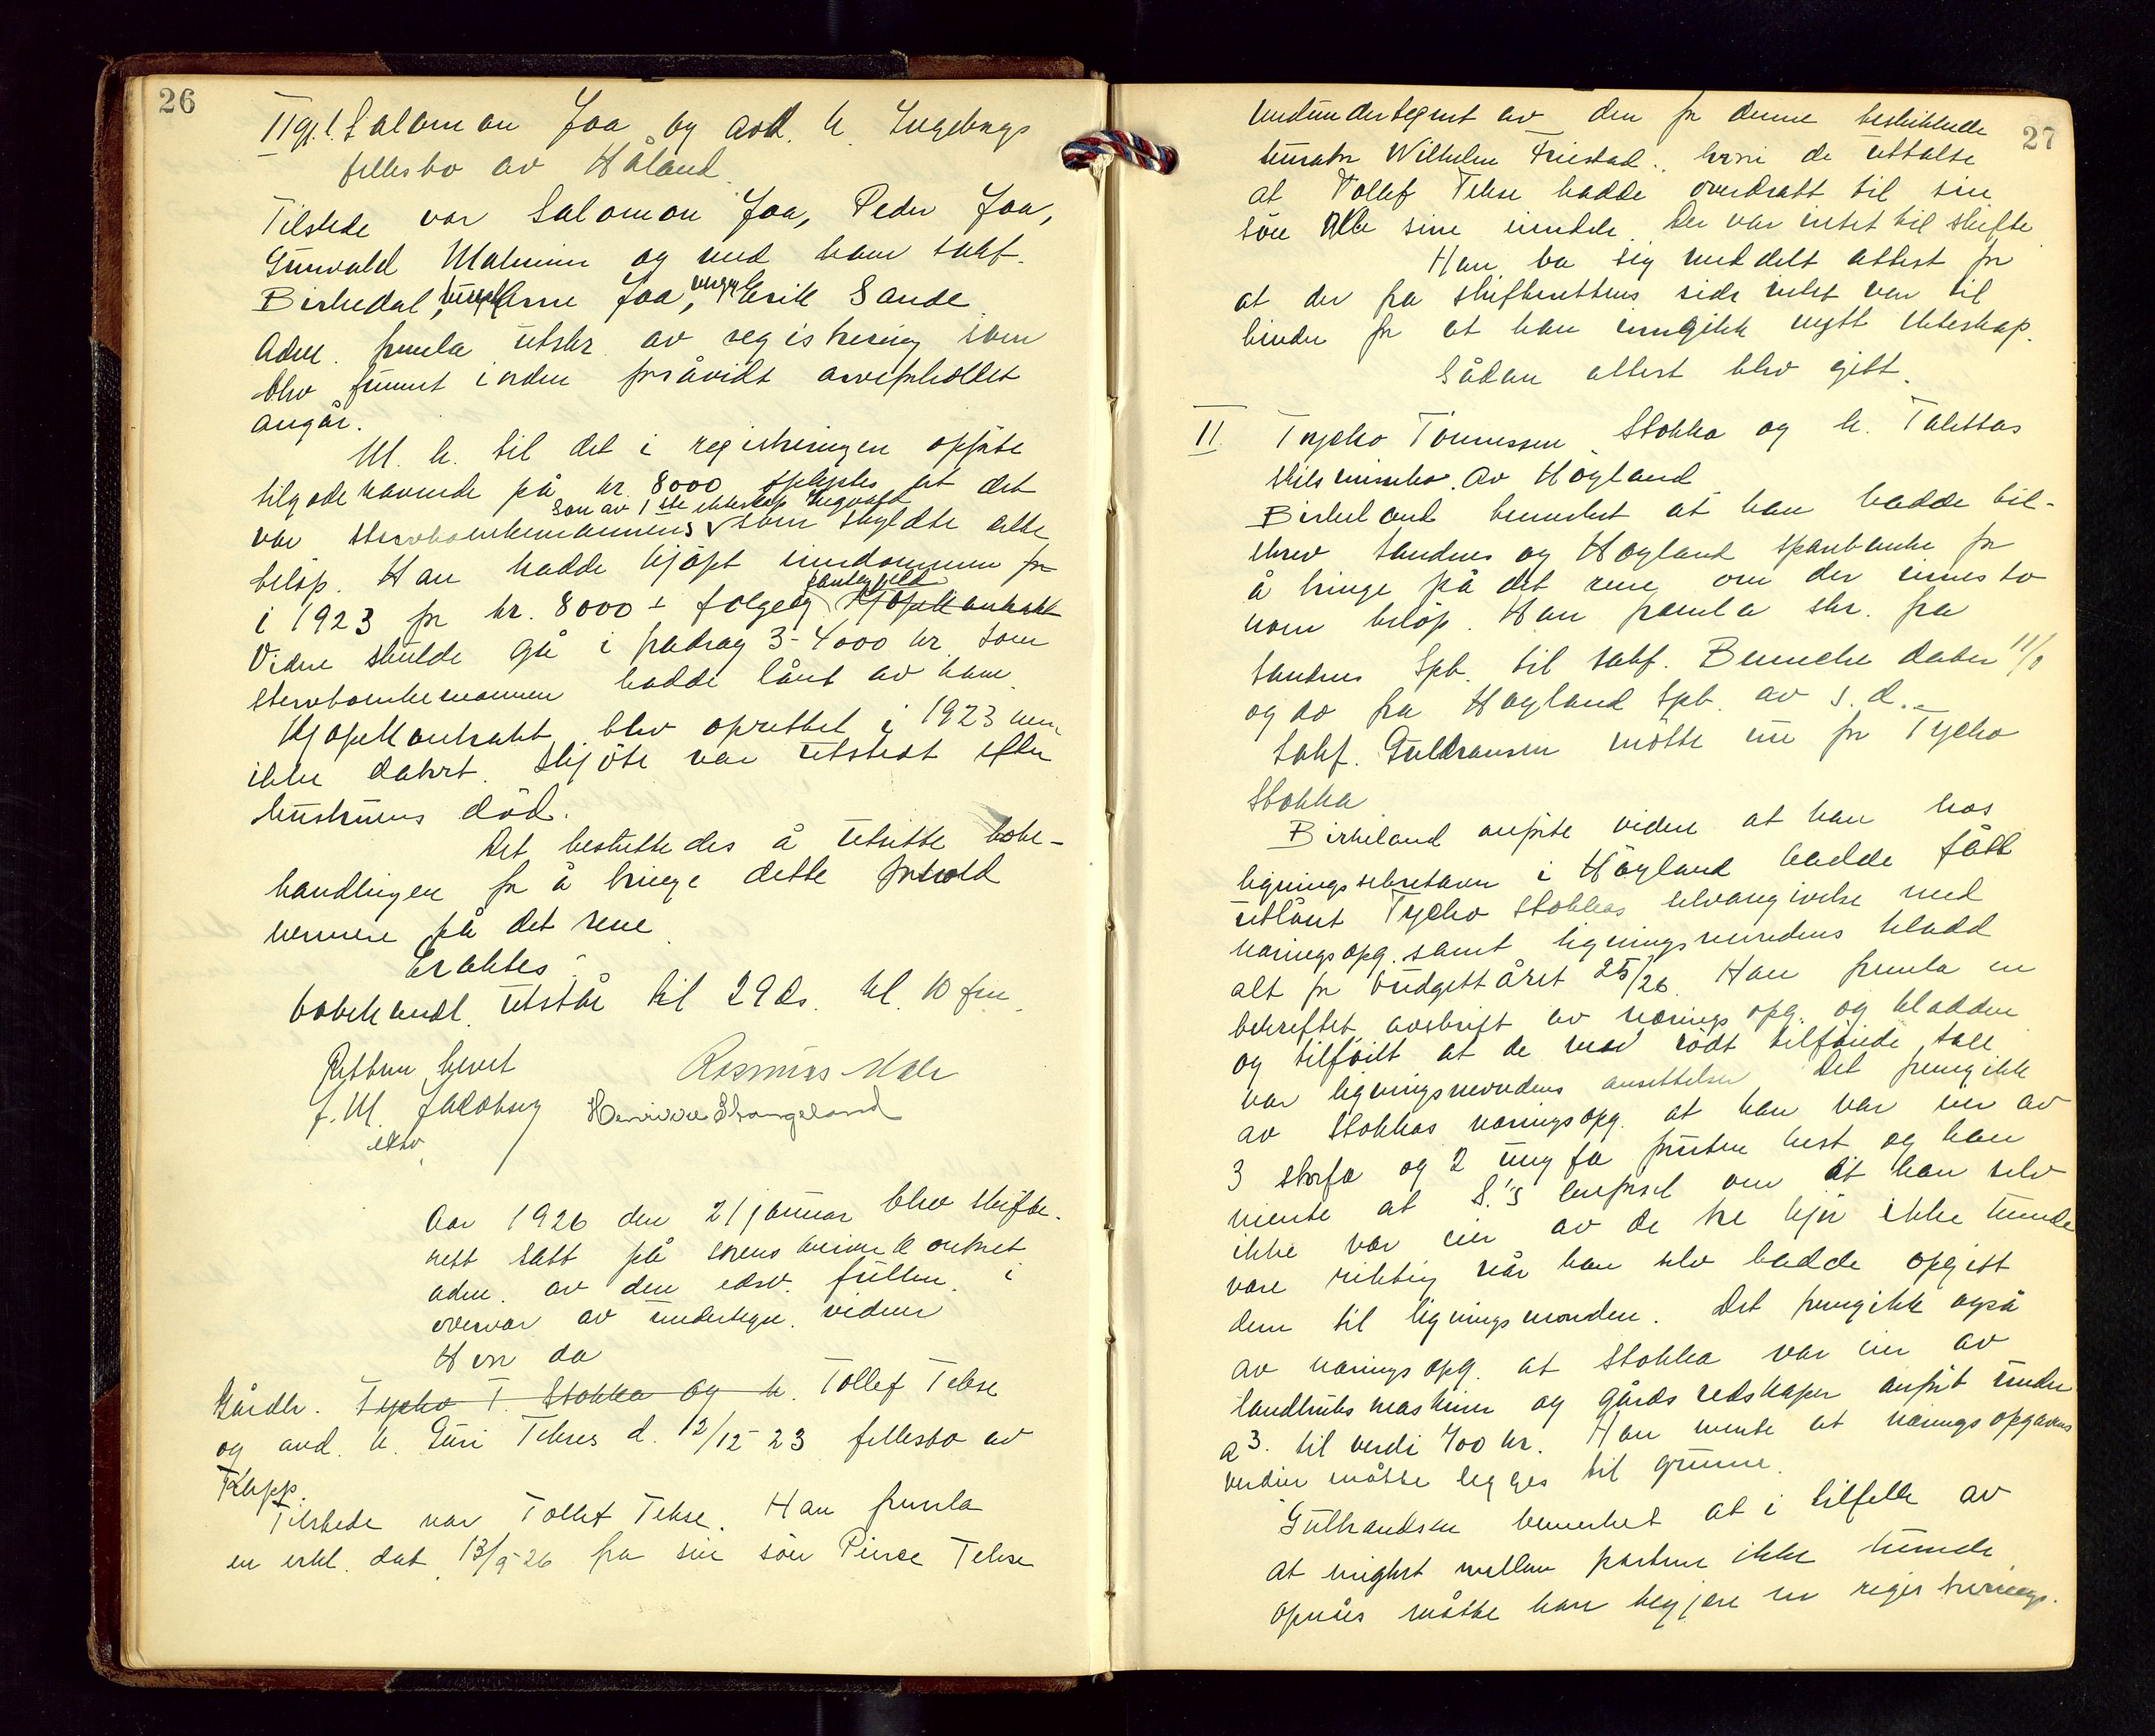 26
II gj. l. Salomon Joa og avd. h. Ingeborgs
fellesbo av Håland.
Tilstede var Salomon Joa, Peder Joa,
Gunvald Malmin og med ham sakf.
Birkedal, Arne Joa, Erik Sande.
Adm. fremla utskr. av registrering som
blev funnet i orden forsåvidt arveforholdet
angår.
M. h. til det i registreringen opførte
tilgodehavende på kr. 8000 oplystes at det
søn av 1ste ekteskap Ingvald
var stervboenkemannens som skyldte dette
beløp. Han hadde kjøpt eiendommen for
pantegjeld
i 1923 for kr. 8000 + følgelig kjøpekontrakt
Videre skulde gå i fradrag 3-4000 kr som
stervboenkemannen hadde lånt av ham.
Kjøpekontrakt blev oprettet i 1923 men
ikke datert. Skjøte var utstedt efter
hustruens død.
Det besluttedes å utsette bobe-
handlingen for å bringe dette forhold
nermere på det rene.
Eraktes:
bobehandl. utstår til 29 ds. kl. 10 fm.
Retten hevet
Rasmus Hale
J. M. Jacobsen Henrikke Stangeland
edsv.
Aar 1926 den 21 januar blev skifte-
rett satt på sorenskriverkontoret
adm. av den edsv. fullm. i
overvær av undertegn. vidner
Hvor da
Gårdbr. Tycho T. Stokka og h. Tollef Tehse
og avd. h. Guri Tehses d. 12/12-23 fellesbo av
Klepp.
Tilstede var Tollef Tehse. Han fremla
en erkl. dat. 13/9-26 fra sin søn Peder Tehse
27
medundertegnet av den for denne beskikkede
kurator Wilhelm Friestad. hvori de uttalte
at Tollef Tehse hadde overdratt til sin
søn alle sine eiendele. Der var intet til skifte.
Han ba sig meddelt attest for
at der fra skifterettens side intet var til
hinder for at han inngikk nytt ekteskap.
Sådan attest blev gitt.
II. Tycho Tønnessen Stokka og h. Talettas
skilsmissebo. av Høyland
Birkeland bemerket at han hadde til-
skrev Sandnes og Høyland sparebanker for
å bringe på det rene om der innesto
noen beløp. Han fremla skr. fra
Sandnes Spb. til sakf. Benneche datert 11/1
og do fra Høyland Spb. av s. d.
Sakf. Gulbransen møtte nu for Tycho
Stokka
Birkeland anførte videre at han hos
ligningssekretæren i Høyland hadde fått
utlånt Tycho Stokkas selvangivelse med
næringsopg. samt ligningsnevndens kladd
alt for budgettåret 25/26. Han fremla en
bekreftet avskrift av nærings opg. og kladden
og tilføilt at de med rødt tilføiede tall
var ligningsnevndens ansettelser. Det fremgikk
av Stokkas næringsopg. at han var eier av
3 storfe og 2 ungfe foruten hest og han
mente at S.'s anførsel om at han selv
ikke var eier av de tre kjør ikke kunde
være riktig når han selv hadde opgitt
dem til ligningsnevnden. Det fremgikk også
av nærings opg. at Stokka var eier av
landbruksmaskiner og gårdsredskaper anført under
a 3. til verdi 400 kr. Han mente at næringsopgavens
verdier måtte legges til grunn.
Gulbrandsen bemerket at i tilfelle av
at enighet mellem partene ikke kunde
opnåes måtte han begjære en registrerings-